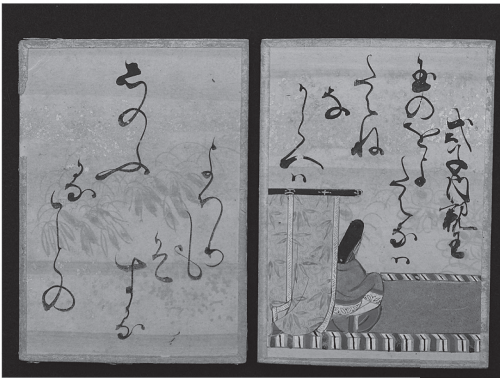 式子内親王
玉のをよ
たえなは
たえね
な
からへは
しのふ
る
ことの
よはり
もそ
する